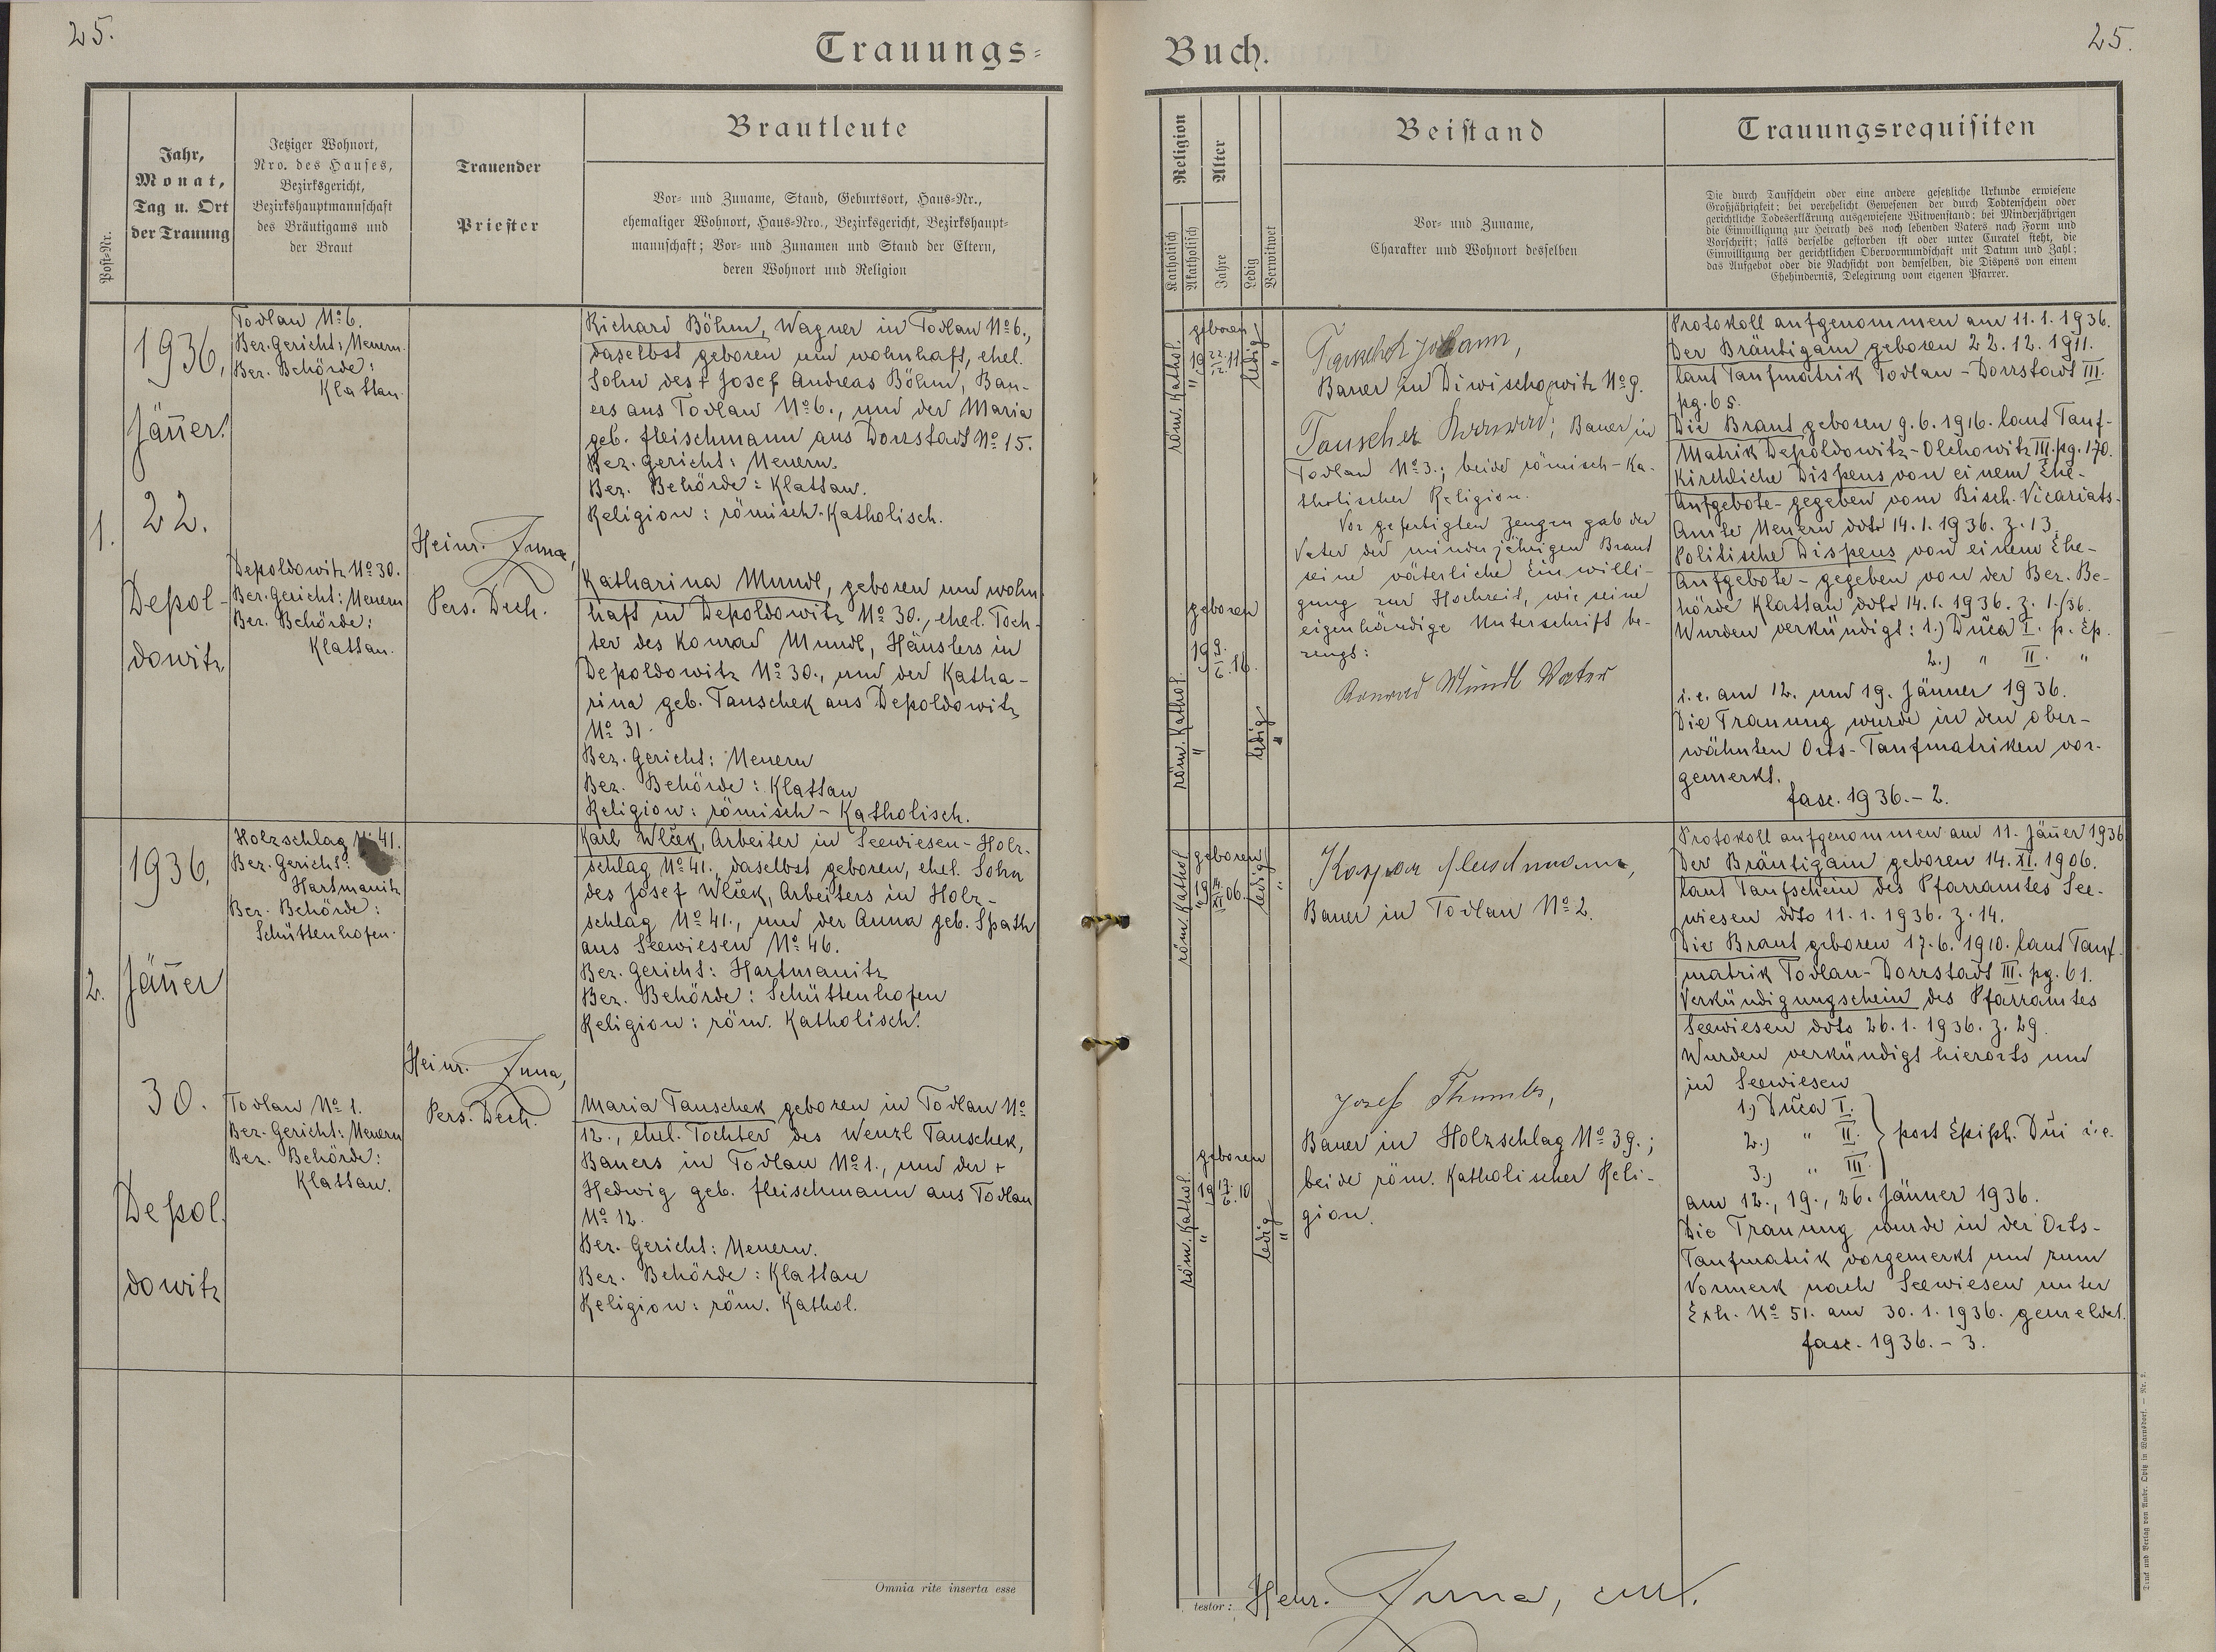 25.
Trauungs-
Post-Nr.
Jahr,
Monat,
Tag u. Ort
der Trauung
Jetziger Wohnort,
Nro. des Hauses,
Bezirksgericht,
Bezirkshauptmannschaft
des Bräutigams und
der Braut
Trauender
Priester
Brautleute
Vor- und Zuname, Stand, Geburtsort, Haus-Nr.,
ehemaliger Wohnort, Haus-Nro., Bezirksgericht, Bezirkshaupt-
mannschaft; Vor- und Zunamen und Stand der Eltern,
deren Wohnort und Religion
1.
1936,
Jänner.
22.
Depol-
dowitz
Todlau No 6.
Bez. Gericht: Neuern.
Bez. Behörde:
Klattau.
Depoldowitz No 30.
Bez. Gericht: Neuern
Bez. Behörde:
Klattau.
Heinr.
Pers. Dech.
Richard Böhm, Wagner in Todlau No 6.,
daselbst geboren und wohnhaft, ehel.
Sohn des + Josef Andreas Böhm, Bau-
ers aus Todlau No 6., und der Maria
geb. Fleischmann aus Dorrstadt No 15.
Bez. Gericht: Neuern.
Bez. Behörde: Klattau.
Religion: römisch-Katholisch.
Katharina Mundl, geboren und wohn
haft in Depoldowitz No 30., ehel. Toch-
ter des Konrad Mundl, Häuslers in
Depoldowitz No 30., und der Katha-
rina geb. Tauschek aus Depoldowitz
No 31.
Bez. Gericht: Neuern
Bez. Behörde: Klattau
Religion: römisch-Katholisch.
2.
1936,
Jänner
30.
Depol.
dowitz
Holzschlag No 41.
Bez. Gericht:
Hartmanitz
Bez. Behörde:
Schüttenhofen.
Todlau No 1.
Bez. Gericht: Neuern
Bez. Behörde:
Klattau.
Heinr.
Pers. Dech.
Karl Wlček, Arbeiter in Seewiesen-Holz-
schlag No 41., daselbst geboren, ehel. Sohn
des Josef Wlček, Arbeiters in Holz-
schlag No 41., und der Anna geb. Späth
aus Seewiesen No 46.
Bez. Gericht: Hartmanitz
Bez. Behörde: Schüttenhofen
Religion: röm. Katholisch.
Maria Tauschek geboren in Todlau No
12., ehel. Tochter des Wenzl Tauschek,
Bauers in Todlau No 1., und der +
Hedwig geb. Fleischmann aus Todlau
No 12.
Bez. Gericht: Neuern.
Bez. Behörde: Klattau
Religion: röm. Kathol.
Omnia rite inserta esse
Buch.
25.
Religion
Katholisch
Akatholisch
Alter
Jahre
Ledig
Verwitwet
Beistand
Vor- und Zuname,
Charakter und Wohnort desselben
Trauungsrequisiten
Die durch Taufschein oder eine andere gesetzliche Urkunde erwiesene
Großjährigkeit; bei verehelicht Gewesenen der durch Todtenschein oder
gerichtliche Todeserklärung ausgewiesene Witwenstand; bei Minderjährigen
die Einwilligung zur Heirath des noch lebenden Vaters nach Form und
Vorschrift; falls derselbe gestorben ist oder unter Curatel steht, die
Einwilligung der gerichtlichen Obervormundschaft mit Datum und Zahl;
das Aufgebot oder die Nachsicht von demselben, die Dispens von einem
Ehehindernis, Delegirung vom eigenen Pfarrer.
röm. Kathol.
"
geboren
19 22./12. 11.
ledig
"
röm. Kathol.
"
geboren
19 9./6. 16.
ledig
"
Johann,
Bauer in Diwischowitz No 9.
Tauschek Konrad; Bauer in
Todlau No 3.; beide römisch-Ka-
tholischer Religion.
Vor gefertigten Zeugen gab der
Vater der minderjährigen Braut
seine väterliche Einwilli-
gung zur Hochzeit, wie seine
eigenhändige Unterschrift be-
zeugt:
Konrad Mundl Vater
Protokoll aufgenommen am 11.1.1936.
Der Bräutigam geboren 22.12.1911.
laut Taufmatrik Todlau-Dorrstadt III.
pg. 65.
Die Braut geboren 9.6.1916. laut Tauf-
Matrik Depoldowitz-Olchowitz III. pg. 170.
Kirchliche Dispens von einem Ehe-
Aufgebote- gegeben vom Bisch. Vicariats-
Amte Neuern ddto 14.1.1936. z. 13.
Politische Dispens von einem Ehe-
Aufgebote- gegeben von der Bez. Be-
hörde Klattau ddto 14.1.1936. z. 1./36.
Wurden verkündigt: 1.) Dñca I. p. Ep.
2.) " II. "
i.e. am 12. und 19. Jänner 1936.
Die Trauung wurde in den ober-
wähnten Orts-Taufmatriken vor-
gemerkt.
fasc. 1936.-2.
röm. Kathol
"
geboren
19 14./XI. 06.
ledig
"
röm. Kathol.
"
geboren
19 17./6. 10
ledig
"
Kaspar Fleischmann,
Bauer in Todlau No 2.
Josef
Bauer in Holzschlag No 39.;
beide röm. Katholischer Reli-
gion.
Protokoll aufgenommen am 11. Jäner 1936
Der Bräutigam geboren 14. XI. 1906.
laut Taufschein des Pfarramtes See-
wiesen ddto 11.1.1936. z. 14.
Die Braut geboren 17.6.1910. laut Tauf-
matrik Todlau-Dorrstadt III. pg. 61.
Verkündigungschein des Pfarramtes
Seewiesen ddto 26.1.1936. z. 29.
Wurden verkündigt hierorts und
in Seewiesen
1.) Dñca I.
2.) " II. } post Epiph. Dñi i.e.
3.) " III.
am 12., 19., 26. Jänner 1936.
Die Trauung wurde in der Orts-
Taufmatrik vorgemerkt und zum
Vormerk nach Seewiesen unter
Exh. No 51. am 30.1.1936. gemeldet.
fasc. 1936.-3.
testor: Heinr.
Druck und Verlag von Ambr. Opitz in Warnsdorf. — Nr. 2.